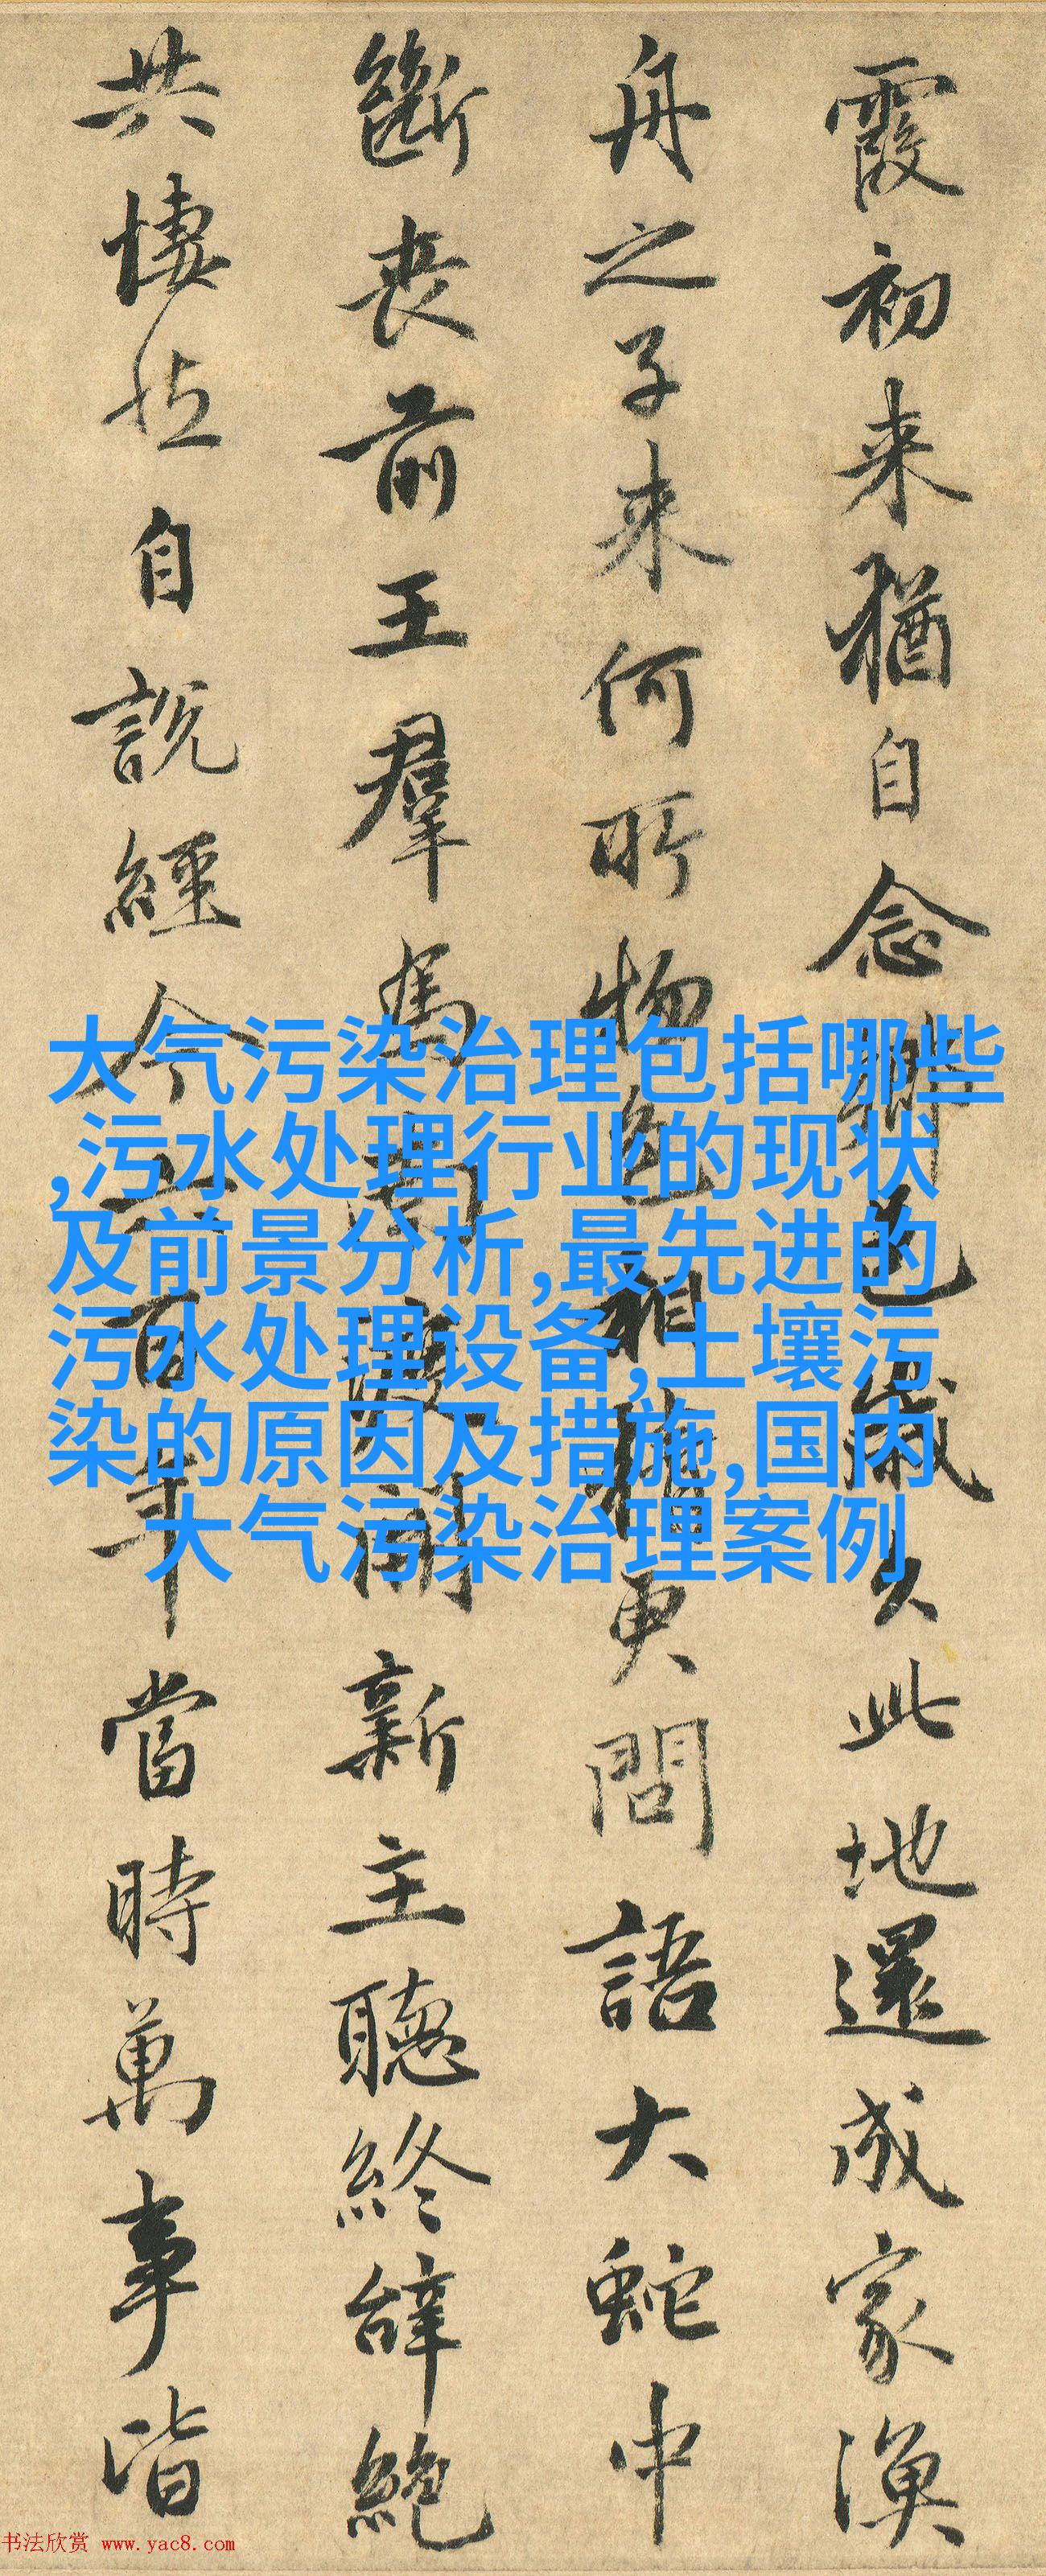 霞初来猶自念鄉邑歲久此地還成家漁
舟之子来何所物色相猜更問語大蛇中
斷喪前王羣馬南渡開新主聽終辭絶
共悽然自說經今六百年當時萬事皆
大气污染治理包括哪些
,污水处理行业的现状
及前景分析,最先进的
污水处理设备,土壤污
染的原因及措施,国内
大气污染治理案例
书法欣赏 www.yac8.com